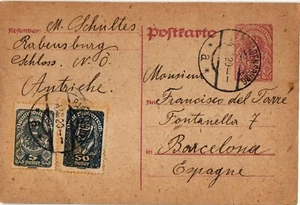 M. Schultes
Postkarte
Rabensburg
Schloss. N. Ö.
Autriche
Monsieur
Francisco del Torre
Fontanella 7
in Barcelona
Espagne
5
50